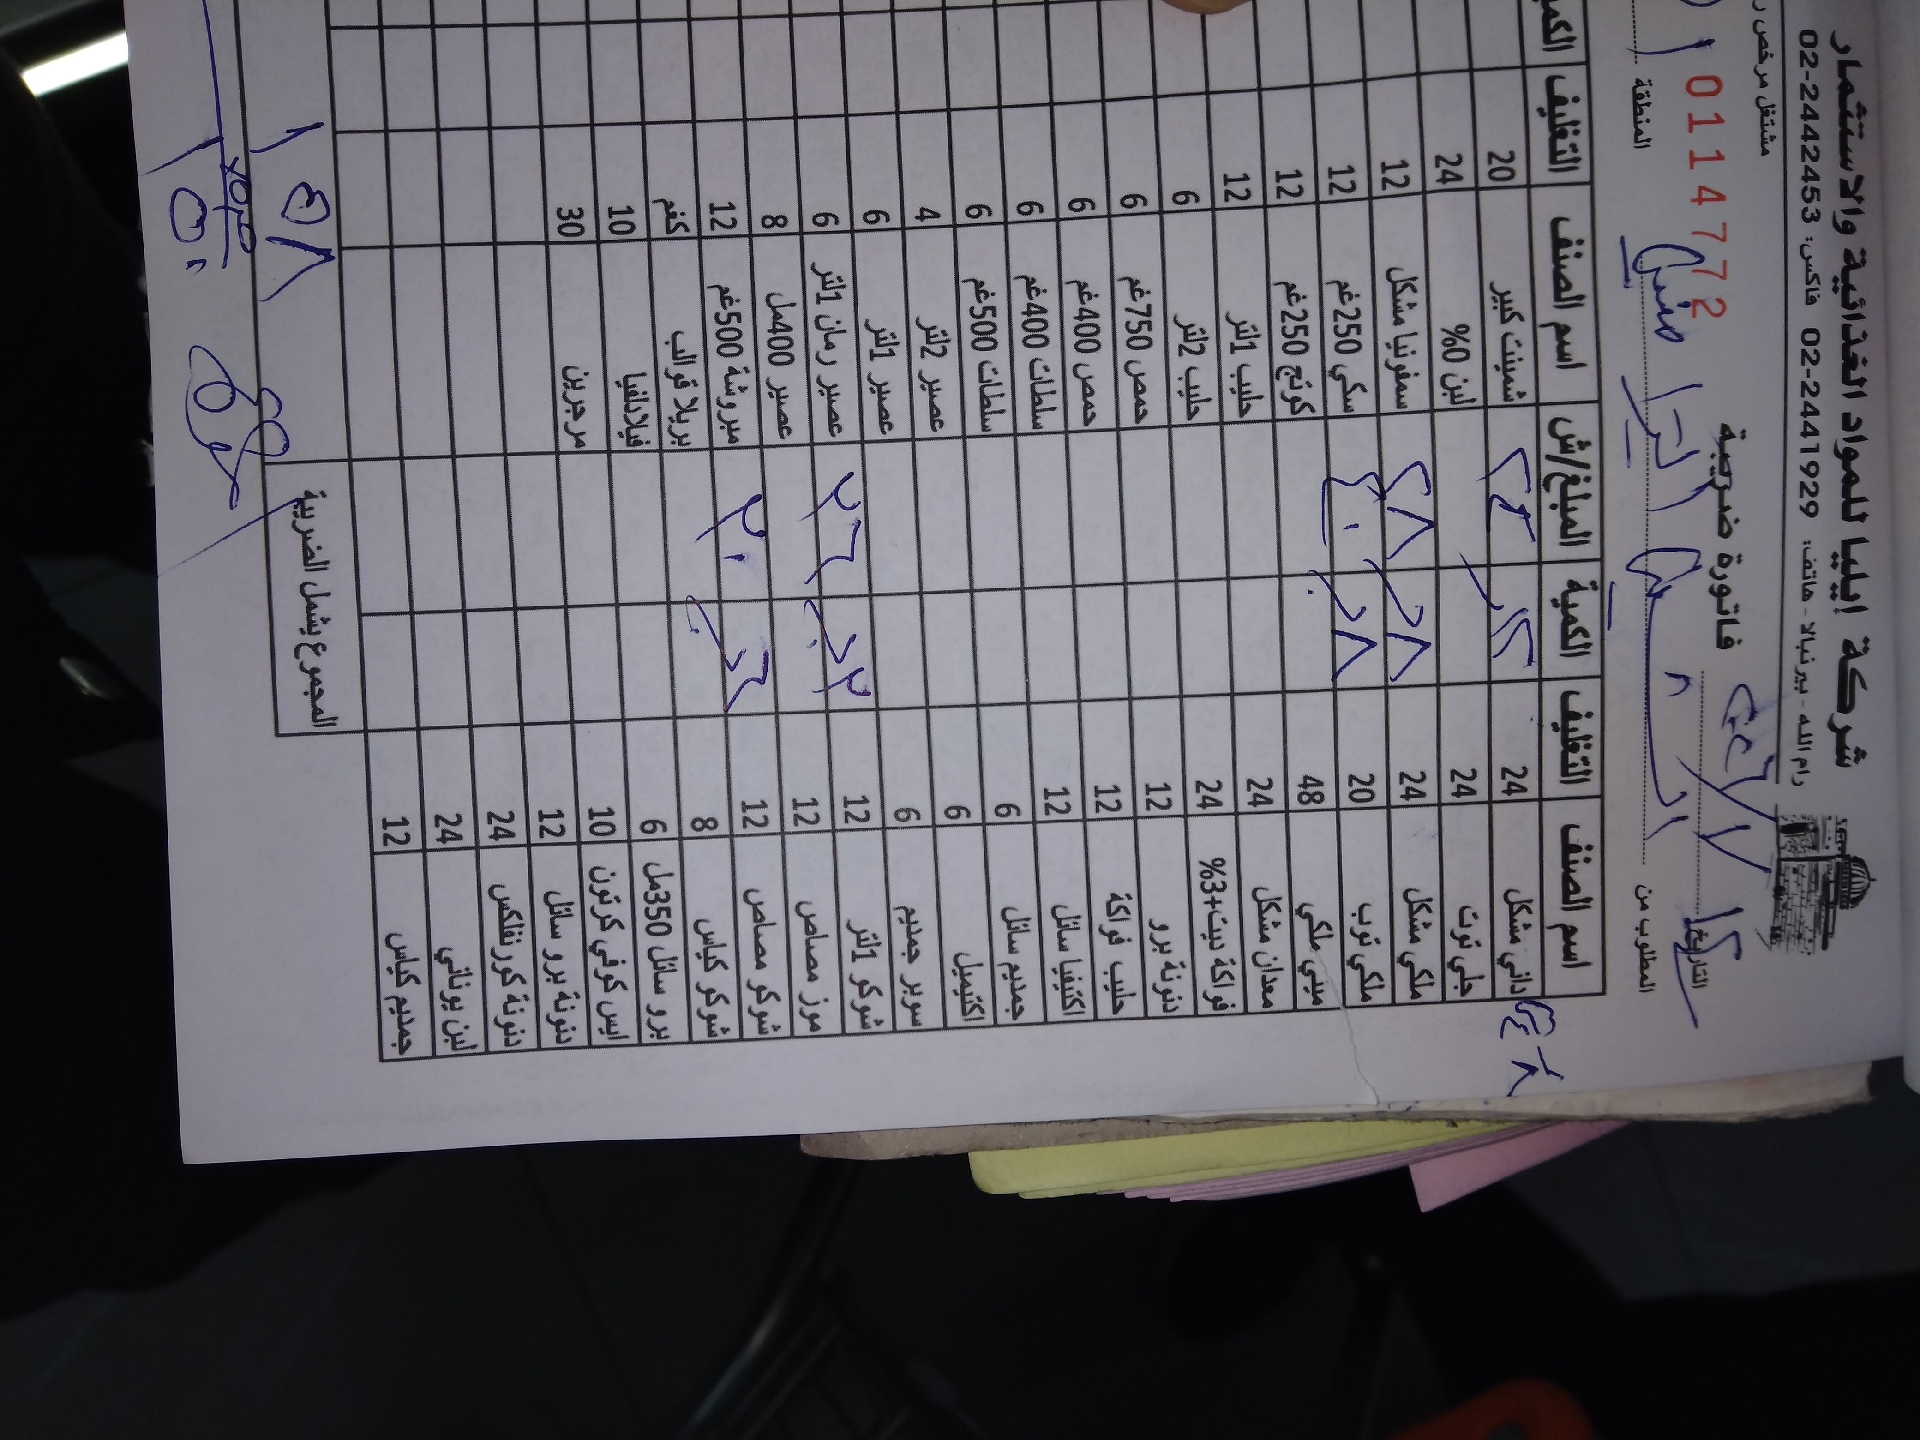 شركة ايليا للمواد الغذائية والاستثمار
رام الله - بيرنبالا - هاتف: 02-2441929 فاكس: 02-2442453
مشتغل مرخص
فاتورة ضريبة
0114772
التاريخ
المطلوب من
المنطقة
اسم الصنف التغليف الكمية المبلغ/ش اسم الصنف التغليف
داني مشكل 24 شمينت كبير 20
جلي توت 24 لبن 0% 24
ملكي مشكل 24 ٢٨ سمفونيا مشكل 12
ملكي توب 20 ٤٠ سكي 250غم 12
ميني ملكي 48 كوتج 250غم 12
معدان مشكل 24 حليب 1لتر 12
فواكة دييت+3% 24 حليب 2لتر 6
دنونة برو 12 حمص 750غم 6
حليب فواكة 12 حمص 400غم 6
اكتيفيا سائل 12 سلطات 400غم 6
جمديم سائل 6 سلطات 500غم 6
اكتيميل 6 عصير 2لتر 4
سوبر جمديم 6 عصير 1لتر 6
شوكو 1لتر 12 ٢٦ عصير رمان 1لتر 6
موز مصاص 12 عصير 400مل 8
شوكو مصاص 12 ٢٠ مبروشة 500غم 12
شوكو كياس 8 بريلا قوالب كغم
برو سائل 350مل 6 فيلادلفيا 10
ايس كوفي كرتون 10 مرجرين 30
دنونة برو سائل 12
دنونة كورنفلكس 24
لبن يوناني 24
جمديم كياس 12
المجموع يشمل الضريبة
١٥٨